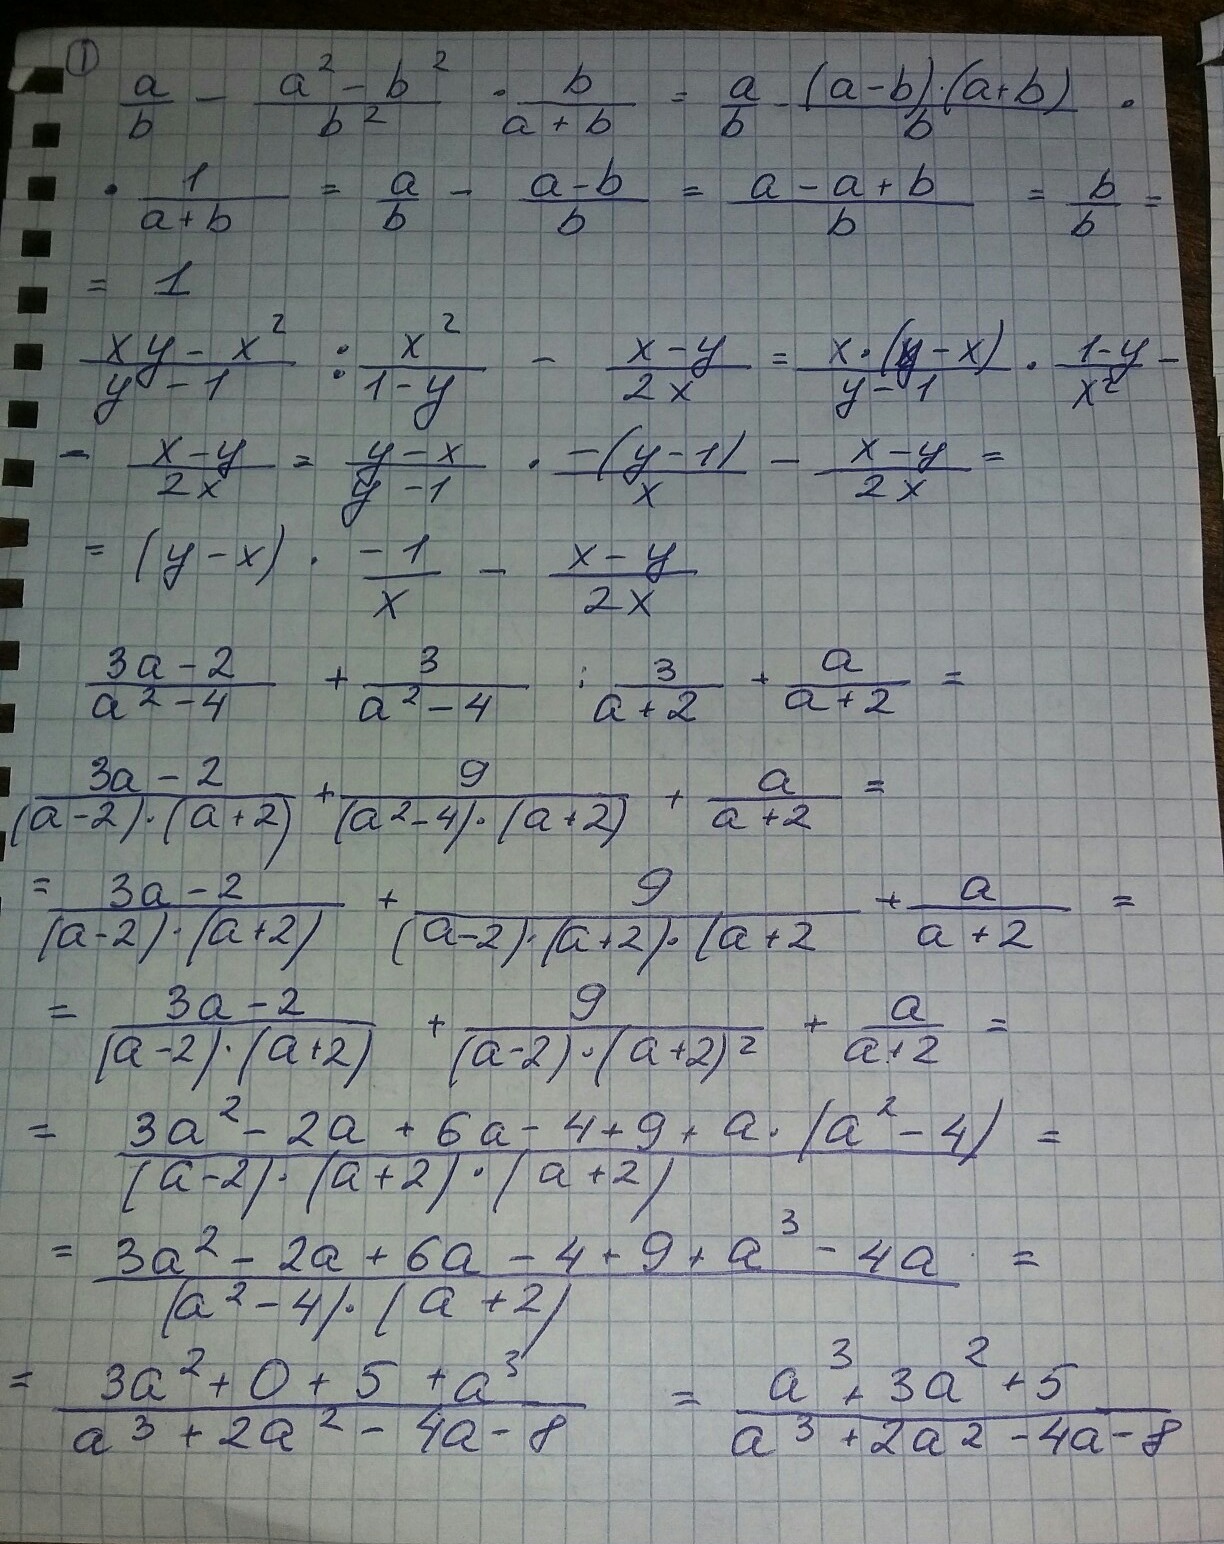 ①
a/b - (a² - b²)/b² · b/(a + b) = a/b - (a-b)·(a+b)/b ·
· 1/(a+b) = a/b - (a-b)/b = (a - a + b)/b = b/b =
= 1
(xy - x²)/(y - 1) : x²/(1-y) - (x-y)/(2x) = x·(y-x)/(y-1) · (1-y)/x² -
- (x-y)/(2x) = (y-x)/(y-1) · -(y-1)/x - (x-y)/(2x) =
= (y-x) · (-1)/x - (x-y)/(2x)
(3a-2)/(a²-4) + 3/(a²-4) : 3/(a+2) + a/(a+2) =
(3a-2)/((a-2)·(a+2)) + 9/((a²-4)·(a+2)) + a/(a+2) =
= (3a-2)/((a-2)·(a+2)) + 9/((a-2)·(a+2)·(a+2) + a/(a+2) =
= (3a-2)/((a-2)·(a+2)) + 9/((a-2)·(a+2)²) + a/(a+2) =
= (3a² - 2a + 6a - 4 + 9 + a·(a²-4))/((a-2)·(a+2)·(a+2)) =
= (3a² - 2a + 6a - 4 + 9 + a³ - 4a)/((a²-4)·(a+2)) =
= (3a² + 0 + 5 + a³)/(a³ + 2a² - 4a - 8) = (a³ + 3a² + 5)/(a³ + 2a² - 4a - 8)